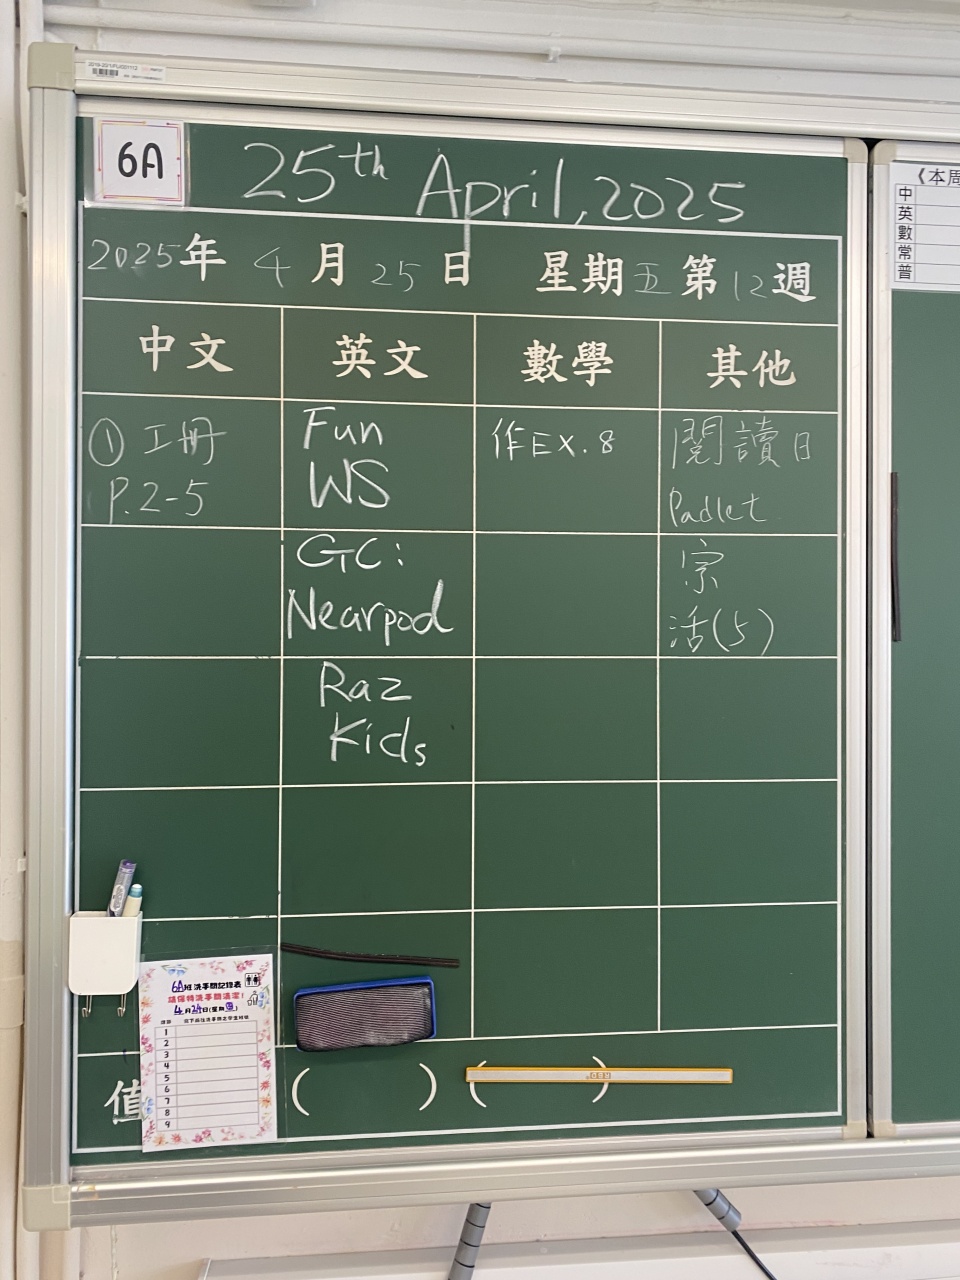 6A
25th April, 2025
2025年 4月 25日 星期五 第12週
中文 英文 數學 其他
① 工冊
P.2-5
Fun
WS
作EX.8
閱讀日
Padlet
GC:
Nearpod
宗
活(5)
Raz
Kids
6A班洗手間記錄表
請保持洗手間清潔!
4月24日(星期四)
1
2
3
4
5
6
7
8
9
值 ( ) ( )
《本周
中
英
數
常
普